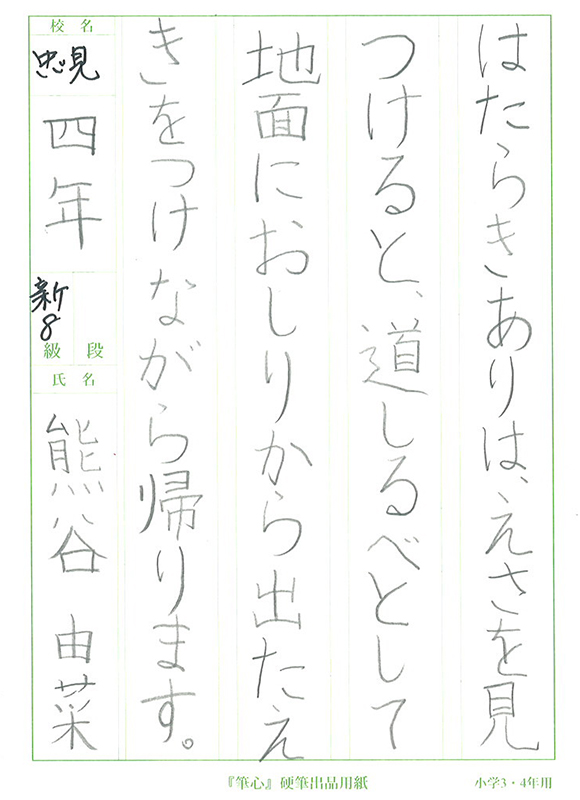 はたらきありは、えさを見
つけると、道しるべとして
地面におしりから出たえ
きをつけながら帰ります。
校名
忠見
四年
新8
級段
氏名
熊谷由菜
『筆心』硬筆出品用紙
小学3・4年用